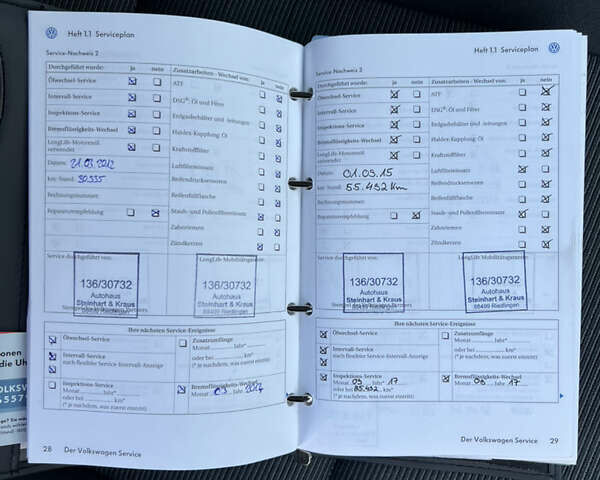 Heft 1.1 Serviceplan
Service-Nachweis 2
Durchgeführt wurde: ja nein Zusatzarbeiten - Wechsel von: ja nein
Ölwechsel-Service ATF
Intervall-Service DSG®-Öl und Filter
Inspektions-Service Erdgasfilter und -leitungen
Bremsflüssigkeits-Wechsel Haldex-Kupplung-Öl
LongLife-Motorenöl verwendet Kraftstofffilter
Datum: 21.03.2012 Luftfiltereinsatz
km-Stand: 30335 Reifendruckssensoren
Rechnungsnummer: Reifenfüllflasche
Reparaturempfehlung Staub- und Pollenfiltereinsatz
Zahnriemen
Zündkerzen
Service durchgeführt von: LongLife Mobilitätsgarantie
136/30732 136/30732
Autohaus Autohaus
Steinhart & Kraus Steinhart & Kraus
88499 Riedlingen 88499 Riedlingen
Ihre nächsten Service-Ereignisse
Ölwechsel-Service Zusatzumfänge
Monat Jahr*
Intervall-Service oder bei km*
nach flexibler Service-Intervall-Anzeige (* je nachdem, was zuerst eintritt)
Inspektions-Service Bremsflüssigkeits-Wechsel
Monat Jahr* Monat 03 Jahr
oder bei km*
(* je nachdem, was zuerst eintritt)
28 Der Volkswagen Service
Heft 1.1 Serviceplan
Service-Nachweis 2
Durchgeführt wurde: ja nein Zusatzarbeiten - Wechsel von: ja nein
Ölwechsel-Service ATF
Intervall-Service DSG®-Öl und Filter
Inspektions-Service Erdgasfilter und -leitungen
Bremsflüssigkeits-Wechsel Haldex-Kupplung-Öl
LongLife-Motorenöl verwendet Kraftstofffilter
Datum: 01.09.15 Luftfiltereinsatz
km-Stand: 55.492 Km Reifendruckssensoren
Rechnungsnummer: Reifenfüllflasche
Reparaturempfehlung Staub- und Pollenfiltereinsatz
Zahnriemen
Zündkerzen
Service durchgeführt von: LongLife Mobilitätsgarantie
136/30732 136/30732
Autohaus Autohaus
Steinhart & Kraus Steinhart & Kraus
88499 Riedlingen 88499 Riedlingen
Ihre nächsten Service-Ereignisse
Ölwechsel-Service Zusatzumfänge
Monat Jahr*
Intervall-Service oder bei km*
nach flexibler Service-Intervall-Anzeige (* je nachdem, was zuerst eintritt)
Inspektions-Service Bremsflüssigkeits-Wechsel
Monat 09 Jahr 17 Monat 09 Jahr 17
oder bei km*
(* je nachdem, was zuerst eintritt)
Der Volkswagen Service 29